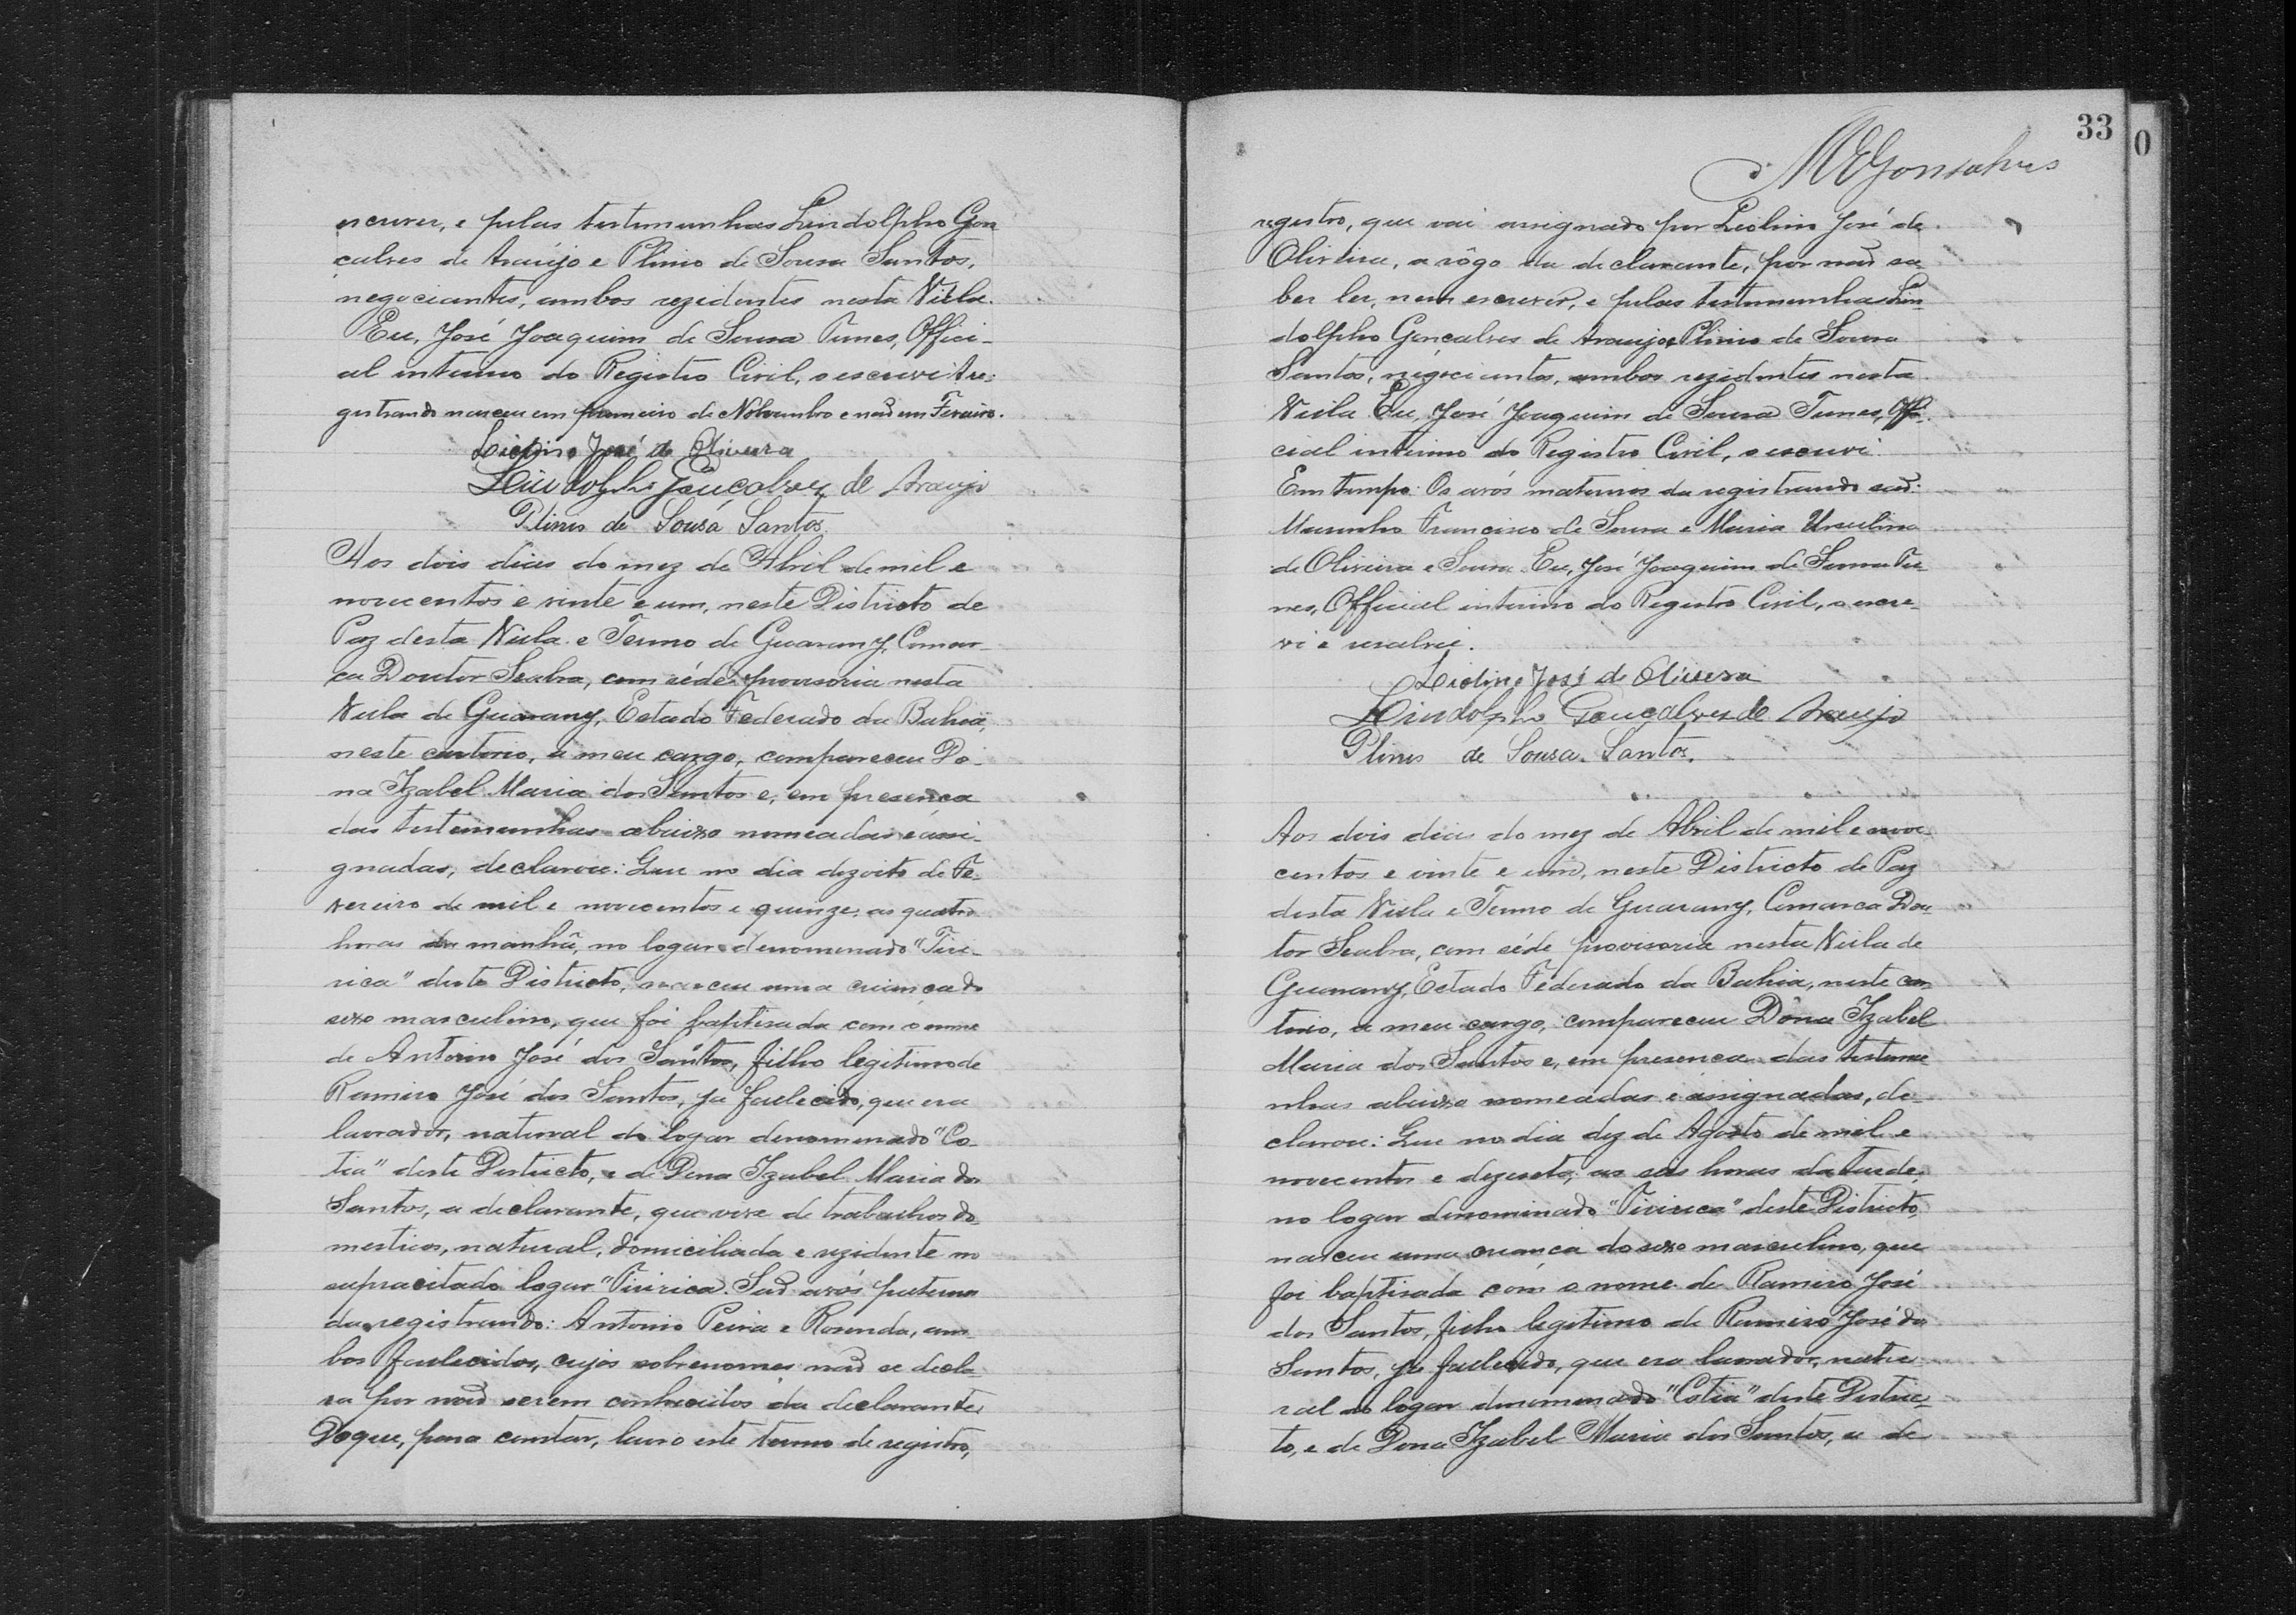 escrever, e pelas testemunhas Lindolpho Gon
calves de Araújo e Plinio de Sousa Santos,
negociantes, ambos rezidentes nesta Villa.
Eu, José Joaquim de Sousa Tunes, Offici-
al interino do Registro Civil, o escrevi. A re-
gistrando nasceu em primeiro de Novembro e naõ em Fevereiro.
Liolino José de Oliveira
Lindolpho Gonçalves de Araujo
Plinio de Sousa Santos.
Aos dois dias do mez de Abril de mil e
novecentos e vinte e um, neste Districto de
Paz desta Villa e Termo de Guarany, Comar-
ca Doutor Seabra, com séde provisoria nesta
Villa de Guarany, Estado Federado da Bahia,
neste cartorio, a meu cargo, compareceu Do-
na Izabel Maria dos Santos e, em presença
das testemunhas abaixo nomeadas e assi-
gnadas, declarou: Que no dia dezoito de Fe-
vereiro de mil e novecentos e quinze, as quatro
horas da manhã, no logar denomenado "Tiri-
rica" deste Districto, nasceu uma criança do
sexo masculino, que foi baptisada com o nome
de Antonio José dos Santos, filho legitimo de
Ramiro José dos Santos, ja faulecido, que era
lavrador, natural do logar denomenado "Co-
tia" deste Districto, e de Dona Izabel Maria dos
Santos, a declarante, que vive de trabalhos do-
mesticos, natural, domiciliada e rezidente no
supracitado logar "Tiririca. Saõ avós paternos
da registrando: Antonio Peixa e Rosenda, am-
bos faulecidos, cujos sobrenomes naõ se decla-
ra por naõ serem conhecidos da declarante.
Do que, para constar, lavro este termo de registro,
33
0
MEGonsalves
registro, que vai assignado por Liolino José de
Oliveira, a rôgo da declarante, por naõ sa-
ber ler, nem escrever, e pelas testemunhas Lin-
dolpho Gonçalves de Araujo e Plinio de Sousa
Santos, negociantes, ambos rezidentes nesta
Villa. Eu, José Joaquim de Sousa Tunes, Offi-
cial interino do Registro Civil, o escrevi.
Em tempo: Os avós maternos da registrando saõ:
Marinho Francisco de Sousa e Maria Ursulina
de Oliveira e Sousa. Eu, José Joaquim de Sousa Tu-
nes, Official interino do Registro Civil, o escre-
vi e resalvei.
Liolino José de Oliveira
Lindolpho Gonçalves de Araujo
Plinio de Sousa Santos.
Aos dois dias do mez de Abril de mil e nove-
centos e vinte e um, neste Districto de Paz
desta Villa e Termo de Guarany, Comarca Dou-
tor Seabra, com séde provisoria nesta Villa de
Guarany, Estado Federado da Bahia, neste car-
torio, a meu cargo, compareceu Dona Izabel
Maria dos Santos e, em presença das testemu-
nhas abaixo nomeadas e assignadas, de-
clarou: Que no dia dez de Agosto de mil e
novecentos e dezesete, as seis horas da tarde,
no logar denominado "Tiririca" deste Districto,
nasceu uma criança do sexo masculino, que
foi baptisada com o nome de Ramiro José
dos Santos, filho legitimo de Ramiro José dos
Santos, ja faulecido, que era lavrador, natu-
ral do logar denomenado "Cotia" deste Distric-
to, e de Dona Izabel Maria dos Santos, a de